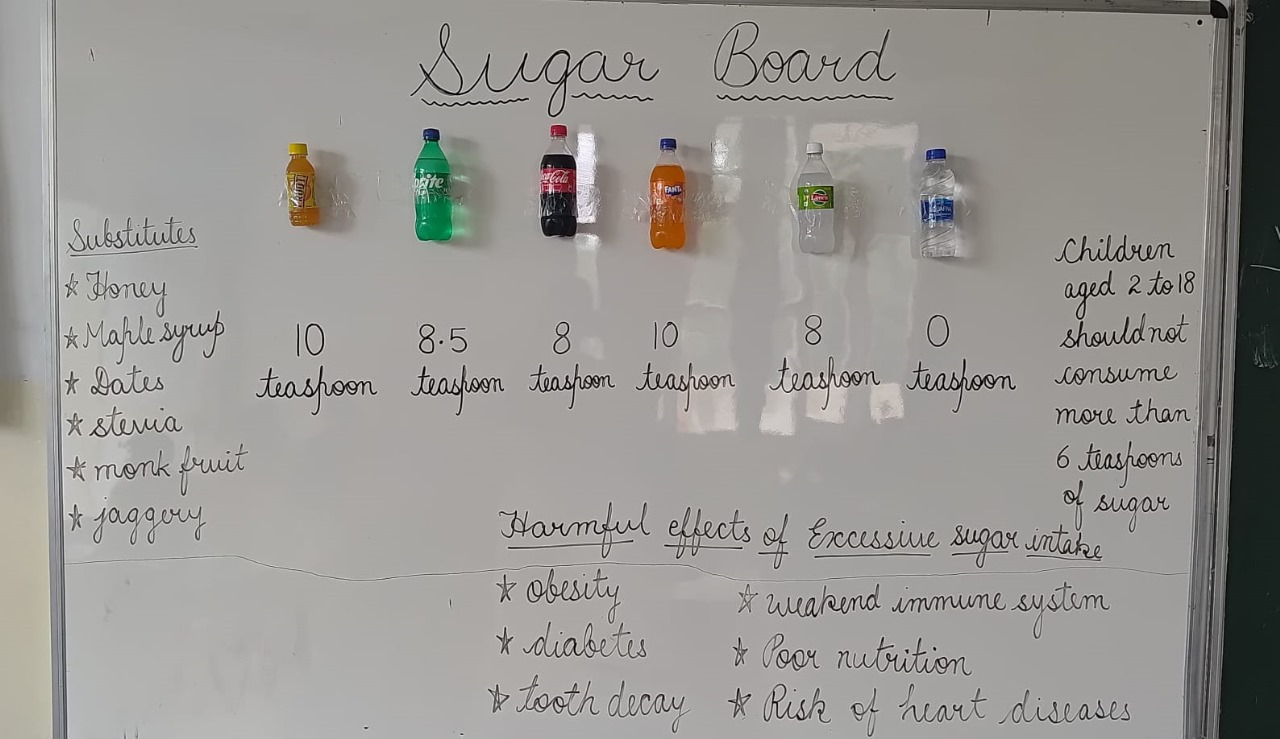 Sugar Board
Sprite
Coca-Cola
FANTA
Limca
AQUAFINA
Substitutes
☆ Honey
☆ Maple syrup
☆ Dates
☆ stevia
☆ monk fruit
☆ jaggery
10 8.5 8 10 8 0
teaspoon teaspoon teaspoon teaspoon teaspoon teaspoon
Children
aged 2 to 18
should not
consume
more than
6 teaspoons
of sugar
Harmful effects of Excessive sugar intake
☆ obesity
☆ diabetes
☆ tooth decay
☆ weakend immune system
☆ Poor nutrition
☆ Risk of heart diseases